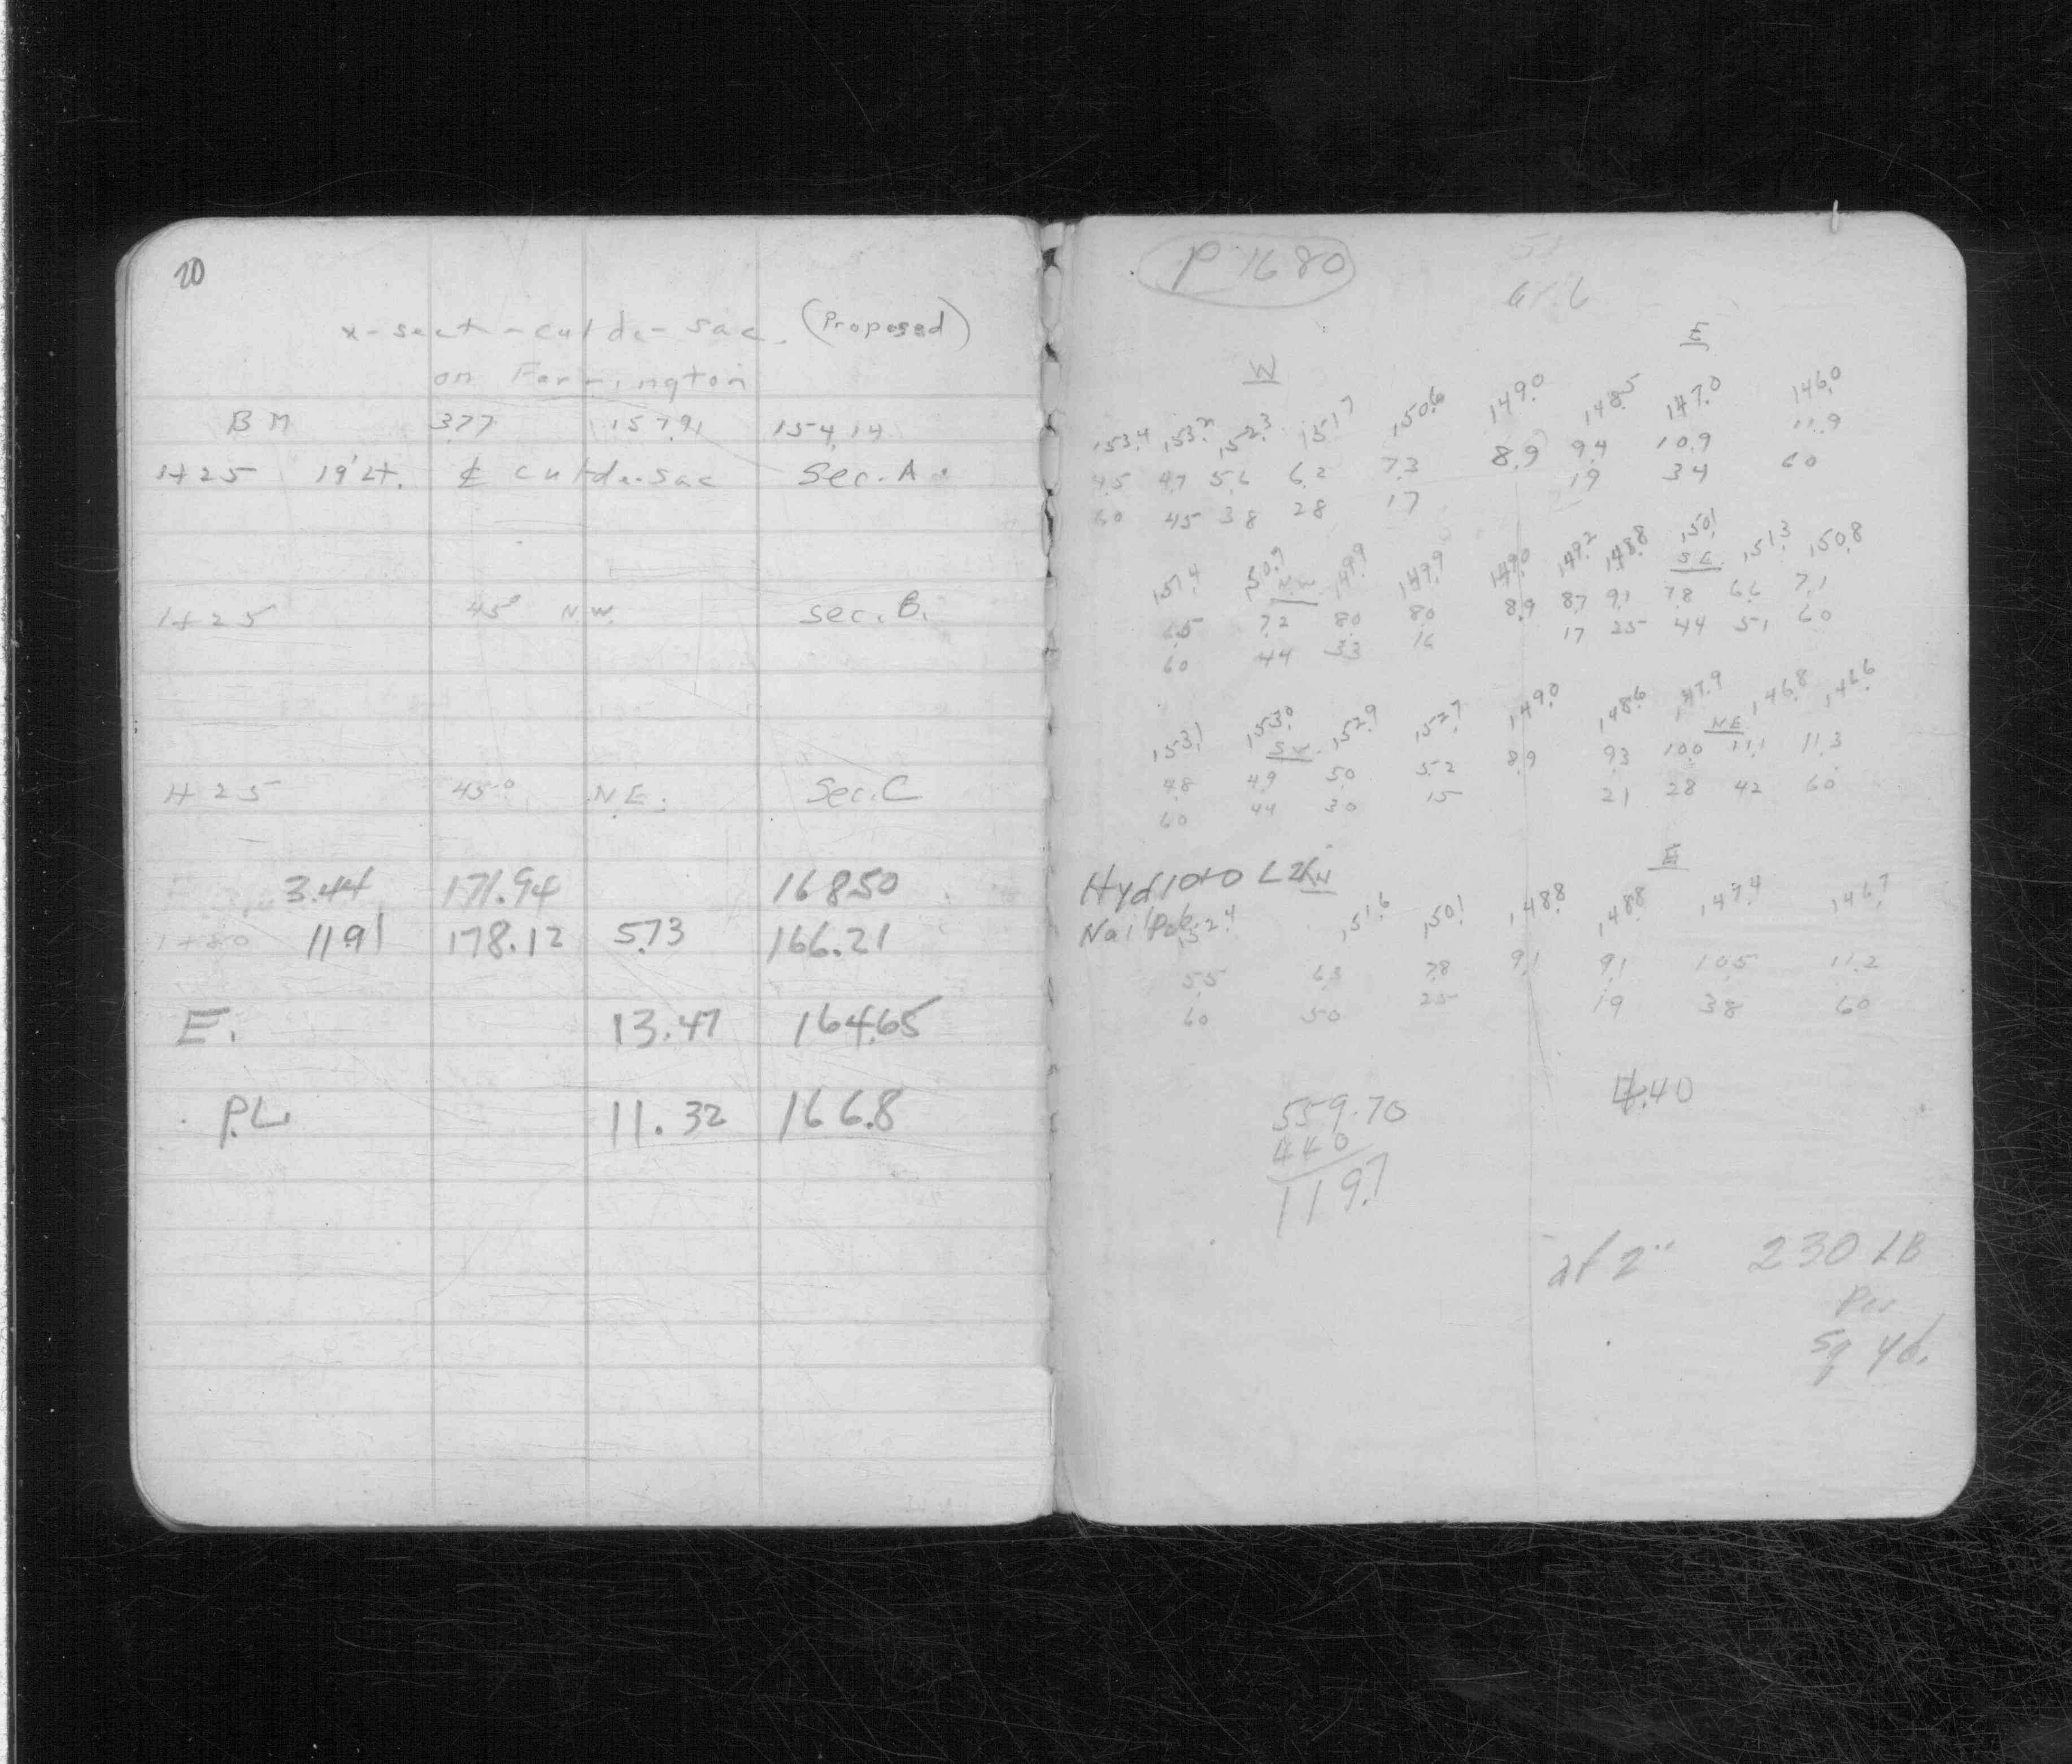 20
x-sect-cul de-sac. (Proposed)
on Farrington
BM 3.77 157.91 154.14
1+25 19' Lt. ℄ cul de.sac Sec. A.
1+25 45° N.W. Sec. B.
1+25 45° N.E. Sec. C
3.44 171.94 168.50
1+80 11.91 178.12 5.73 166.21
E. 13.47 164.65
P.L. 11.32 166.8
P 1680
W E
153.4 153.2 152.3 151.7 150.6 149.0 148.5 147.0 146.0
4.5 4.7 5.6 6.2 7.3 8.9 9.4 10.9 11.9
60 45 38 28 17 19 34 60
151.4 150.7 149.9 149.9 149.0 149.2 148.8 150.1 151.3 150.8
N.W. S.E.
6.5 7.2 8.0 8.0 8.9 8.7 9.1 7.8 6.6 7.1
60 44 33 16 17 25 44 51 60
153.1 153.0 152.9 152.7 149.0 148.6 147.9 146.8 146.6
S.W. N.E.
4.8 4.9 5.0 5.2 8.9 9.3 10.0 11.1 11.3
60 44 30 15 21 28 42 60
Hyd 10+0 W E
Nail Pole 152.4 151.6 150.1 148.8 148.8 147.4 146.7
5.5 6.3 7.8 9.1 9.1 10.5 11.2
60 50 25 19 38 60
559.70 4.40
440
119.7
at 2" 230 LB
Per
Sq Yd.